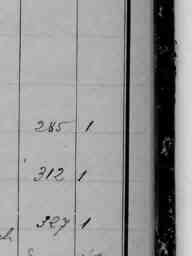 285 1
312 1
327 1